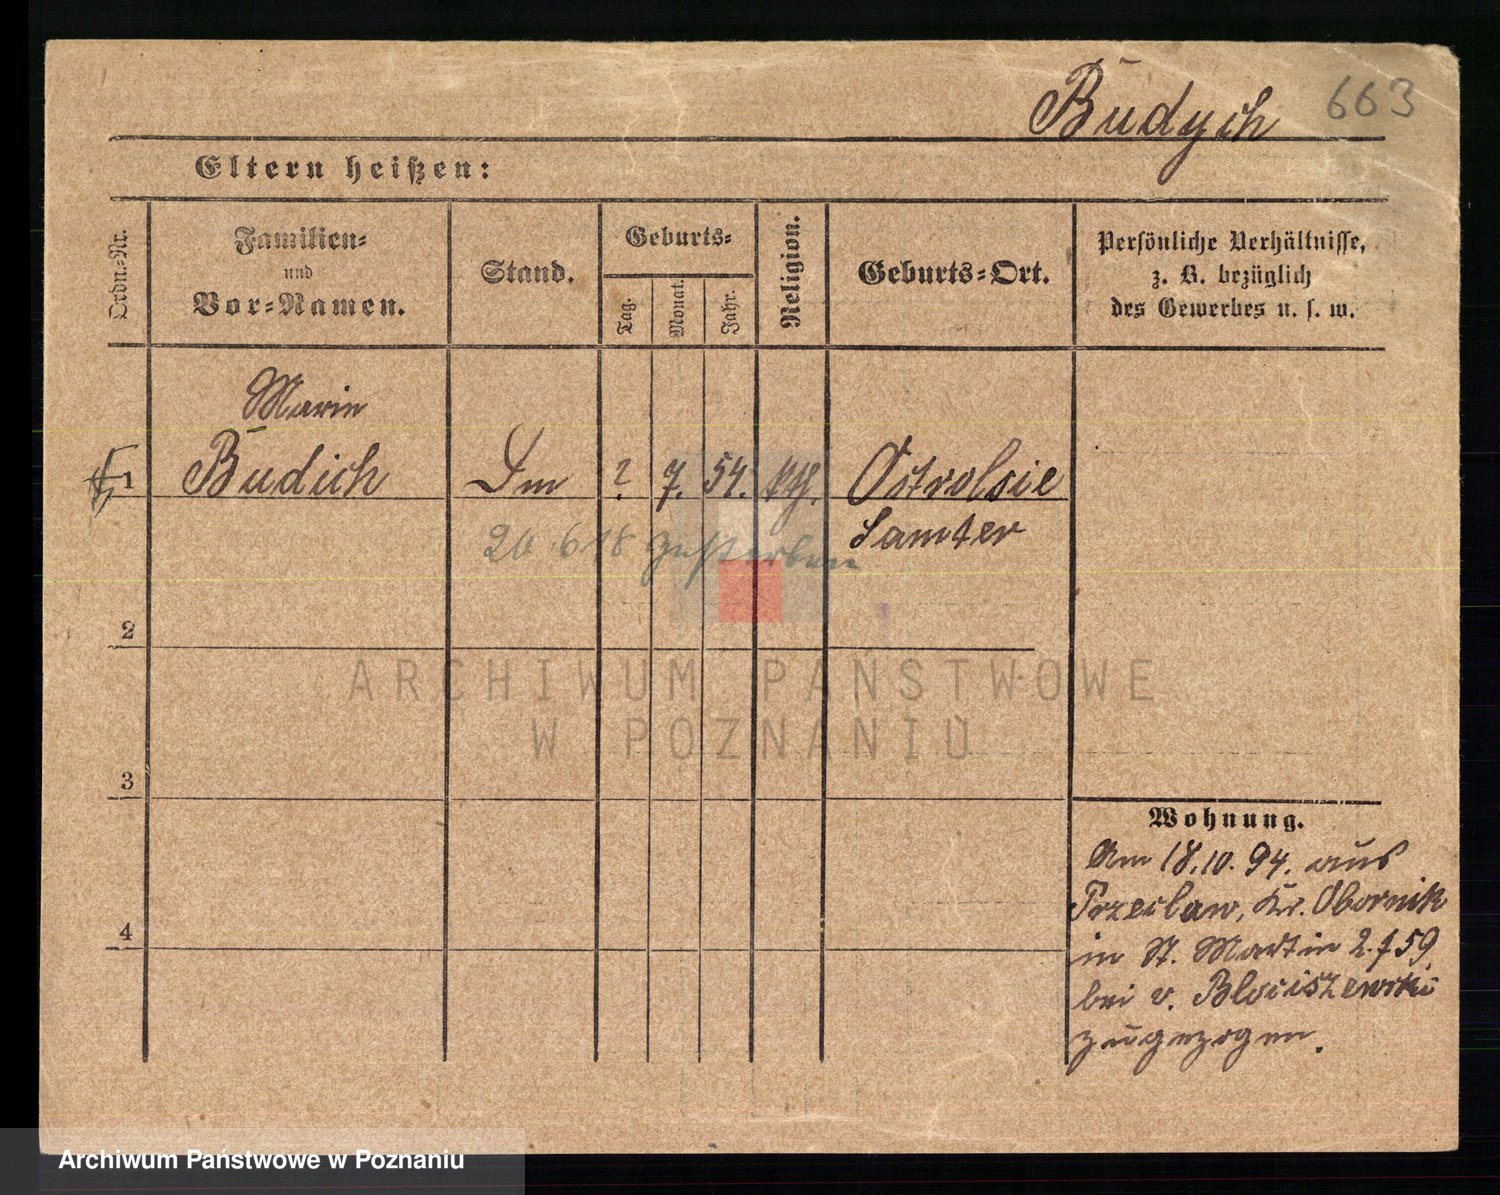 Budych 663
Eltern heißen:
Ordn.-Nr.
Familien-
und
Vor-Namen.
Stand.
Geburts-
Tag.
Monat.
Jahr.
Religion.
Geburts-Ort.
Persönliche Verhältnisse,
z. B. bezüglich
des Gewerbes u. s. w.
Marie
1 Budich ? 7. 54. kth. Ostrolsie
Samter
20.6 18 gestorben
2
3
4
ARCHIWUM PAŃSTWOWE
W POZNANIU
Wohnung.
Am 18.10.94. aus
Przeclaw, Kr. Obornik
in St. Martin 59
bei v. Blociszewski
zugezogen.
Archiwum Państwowe w Poznaniu